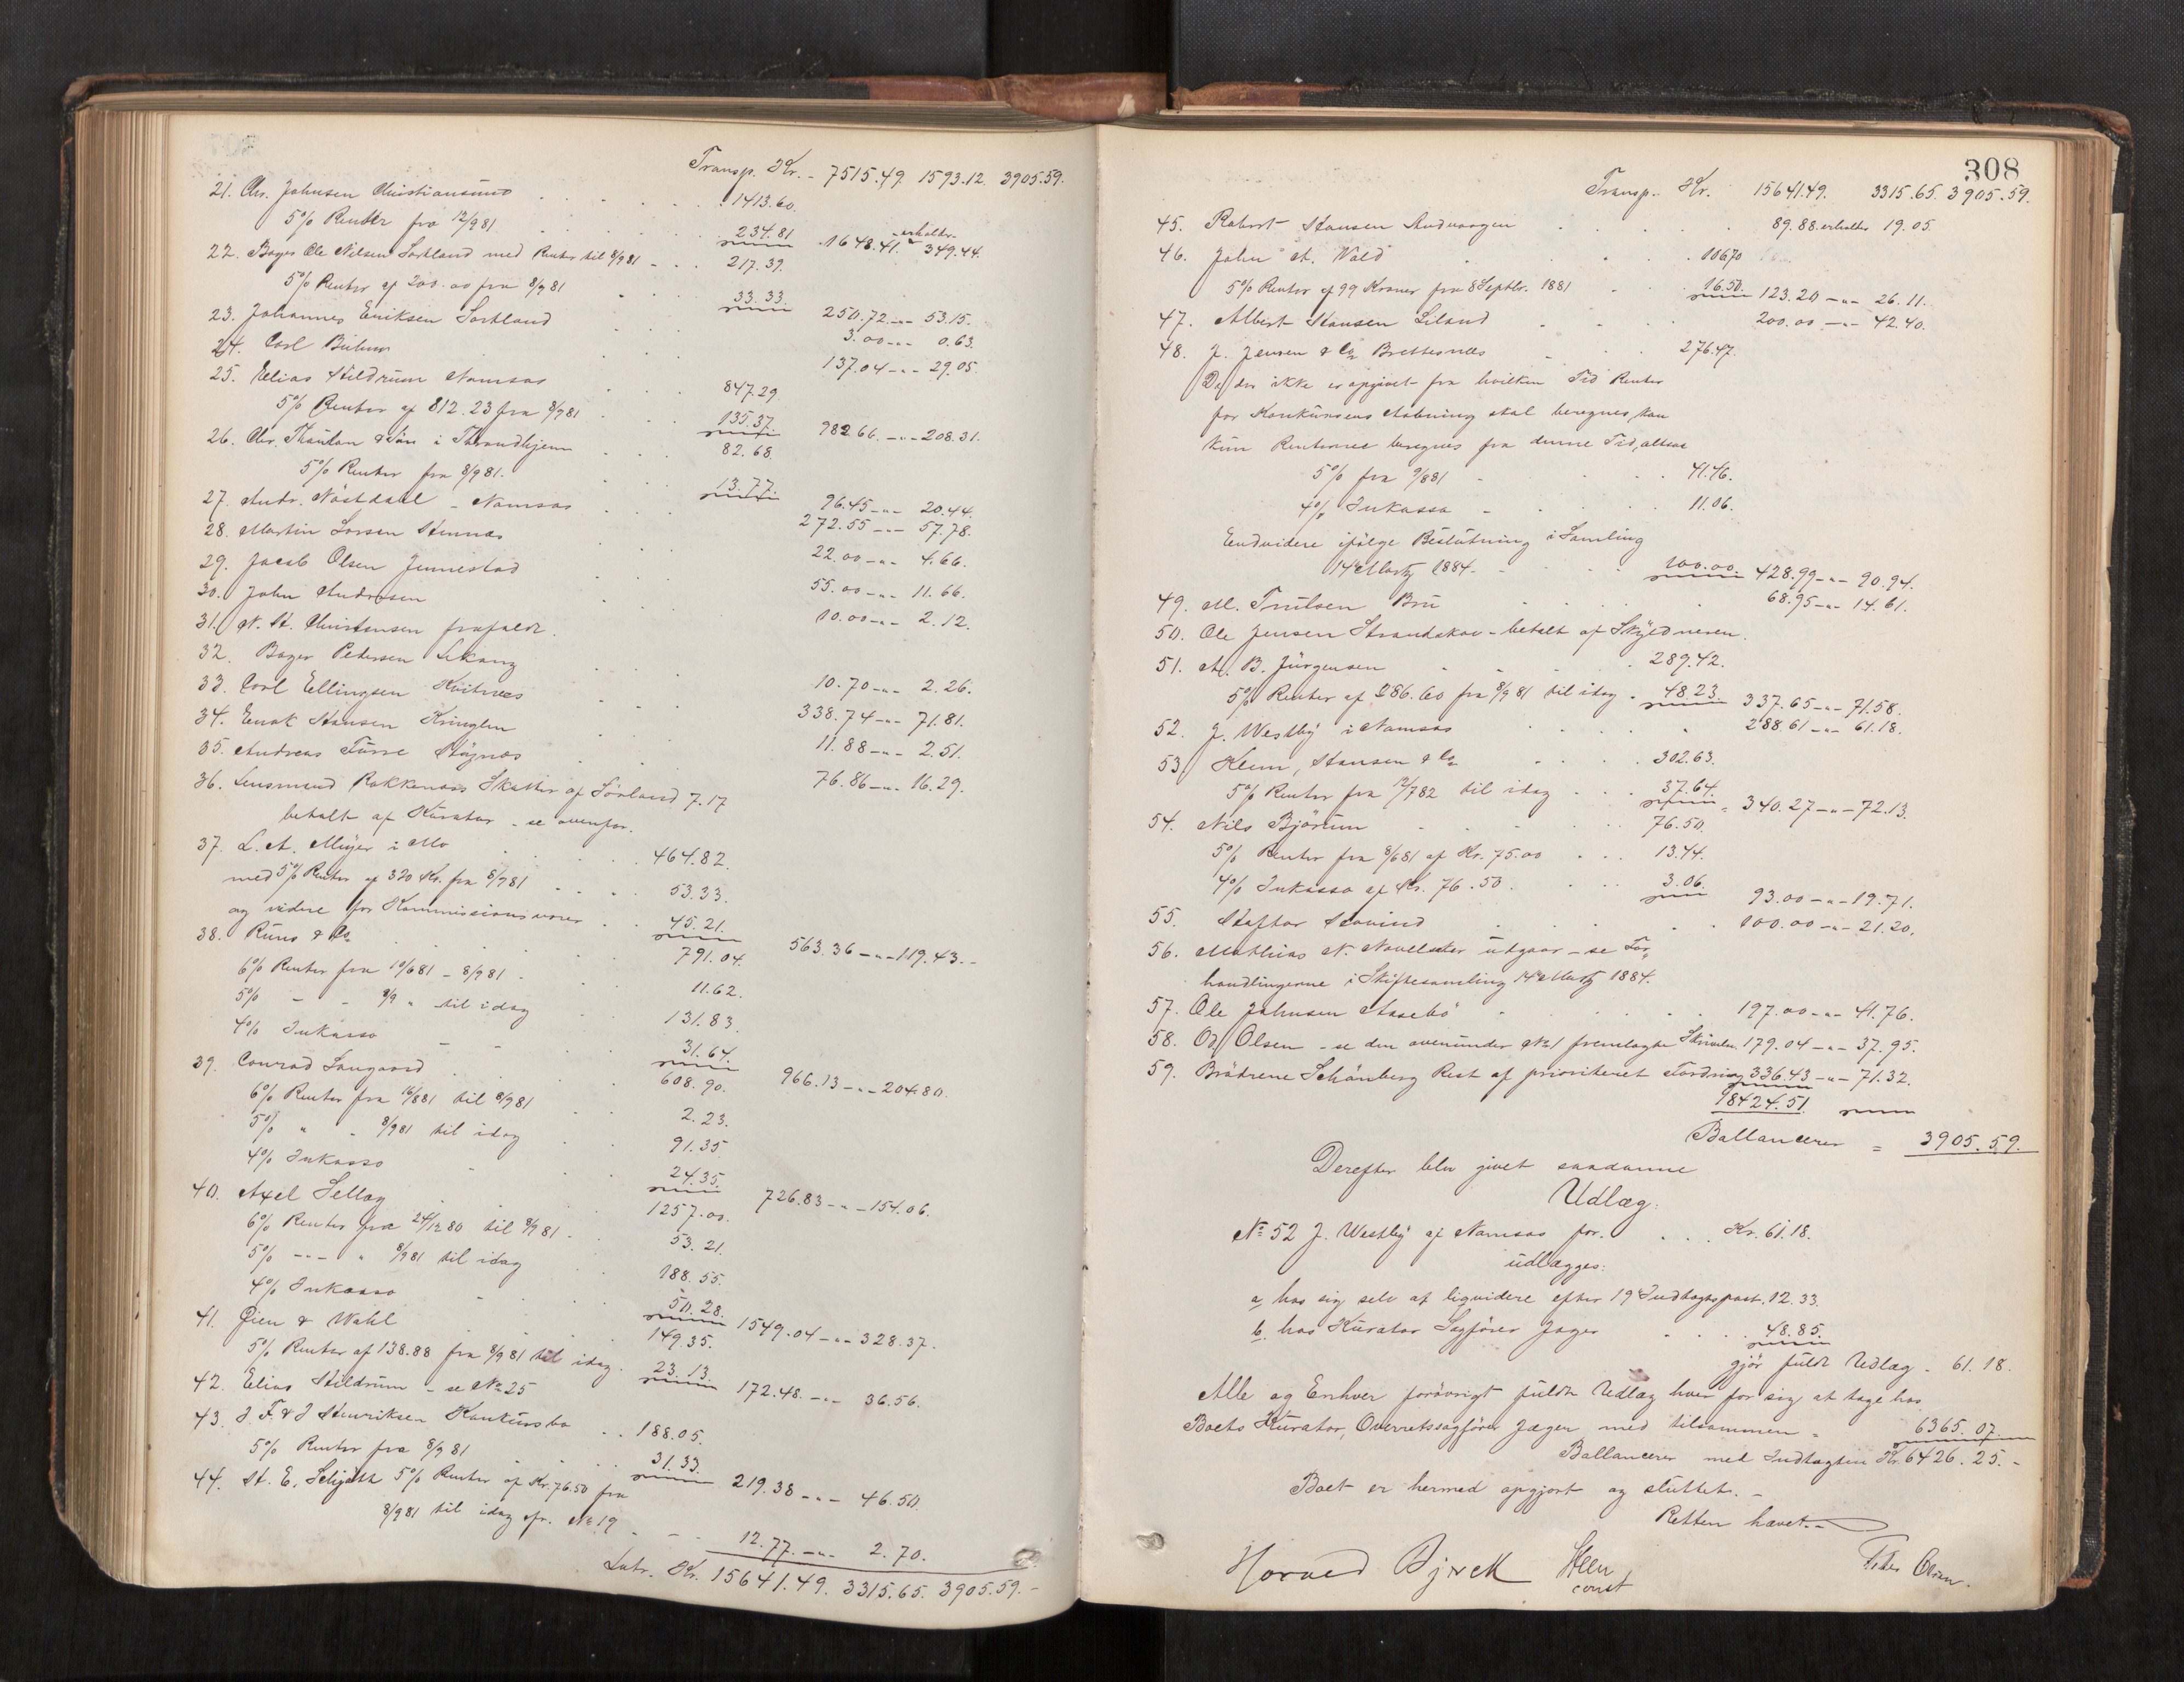 Transp. Kr. - 7515.49. 1593.12. 3905.59.
21. Chr. Johnsen Christiansund . . . 1413.60.
5% Renter fra 12/9 81 . . . 234.81 1648.41. erholder 349.44.
22. Bager Ole Nilsen Sortland med Renter til 8/9 81 - . . 217.39.
5% Renter af 200.00 fra 8/9 81 . . 33.33. 250.72 -"- 53.15.
23. Johannes Eriksen Sortland . . . 3.00 -"- 0.63.
24. Carl . . . 137.04 -"- 29.05.
25. Elias Hildrum Namsos . . . 847.29.
5% Renter af 812.23 fra 8/9 81 . . . 135.37. 982.66. -"- 208.31.
26. Chr. Thaulow & Søn i Throndhjem . . . 82.68.
5% Renter fra 8/9 81. . . 13.77. 96.45 -"- 20.44.
27. Andr. Nöstdahl - Namsos . . . 272.55 -"- 57.78.
28. Martin Larsen Stennæs . . . 22.00 -"- 4.66.
29. Jacob Olsen Jennestad . . . 55.00 -"- 11.66.
30. John Andresen . . . 10.00 -"- 2.12.
31. N. H. Christensen frafaldt.
32. Bager Pedersen . . . 10.70 -"- 2.26.
33. Carl Ellingsen Hvitnes . . . 338.74 -"- 71.81.
34. Enok Hansen Kringlen . . . 11.88 -"- 2.51.
35. Andreas . . . 76.86 -"- 16.29.
36. Lensmand Rokkenæs Skatter af Sörland 7.17
betalt af Kurator - se ovenfor.
37. L. A. Meyer i Mo . . . 464.82.
med 5% Renter af 320 Kr. fra 8/9 81 . . . 53.33.
og videre for Kommissionsvarer . . 45.21. 563.36 -"- 119.43. -
38. Ruus & Co . . . 791.04.
6% Renter fra 10/6 81 - 8/9 81 - . . 11.62.
5% - - 8/9 " til idag . . 131.83.
4% Inkasso - - . . 31.64. 966.13 -"- 204.80.
39. Conrad Langaard . . . 608.90.
6% Renter fra 16/8 81 til 8/9 81 . . 2.23.
5% " - 8/9 81 til idag . . 91.35.
4% Inkasso - . . 24.35. 726.83 -"- 154.06.
40. Axel Sellæg . . . 1257.00.
6% Renter fra 24/12 80 til 8/9 81 - . . 53.21.
5% -"- " 8/9 81 til idag . . 188.55.
4% Inkasso - . . . 50.28. 1549.04 -"- 328.37.
41. Øien & Wahl . . . 149.35.
5% Renter af 138.88 fra 8/9 81 til idag. 23.13. 172.48. -"- 36.56.
42. Elias Hildrum - se No 25
43. J. F. & J Henriksen Konkursbo . . 188.05.
5% Renter fra 8/9 81 . . . 31.33. 219.38 -"- 46.50.
44. H. E. 5% Renter af Kr. 76.50 fra
8/9 81 til idag cfr. No 19 - - - 12.77. -"- 2.70.
Latr. Kr. 15641.49. 3315.65. 3905.59. -
308
Transp. Kr. 15641.49. 3315.65. 3905.59.
45. Robert Hansen . . . 89.88. erholder 19.05.
46. John A. Vold . . . 106.70
5% Renter af 99 Kroner fra 8 Septbr. 1881 . . 16.50. 123.20 -"- 26.11.
47. Albert Hansen Liland . . . 200.00 -"- 42.40.
48. J. Jensen & Co Brettesnæs - . . 276.47.
Da der ikke er opgivet fra hvilken Tid Renter
for Konkursens Aabning skal beregnes, kan
kun Renterne beregnes fra denne Tid, altsaa
5% fra 9/8 81 - . . 41.46.
4% Inkasso - . . . 11.06.
Endvidere ifølge Beslutning i Samling
14de Marts 1884 - . . . 100.00. 428.99 -"- 90.94.
49. M. Trulsen Bru . . . 68.95 -"- 14.61.
50. Ole Jensen Strandskov - betalt af Skyldneren.
51. A. B. Jürgensen - - . . 289.42.
5% Renter af 286.60 fra 8/9 81 til idag . 48.23. 337.65 -"- 71.58.
52. J. Westby i Namsos . . . 288.61 -"- 61.18.
53 Klem, Hansen & Co . . . 302.63.
5% Renter fra 12/7 82 til idag . . . 37.64. 340.27 -"- 72.13.
54. Nils Bjørum . . . 76.50.
5% Renter fra 8/6 81 af Kr. 75.00 . . . 13.44.
4% Inkasso af Kr. 76.50. . . . 3.06. 93.00 -"- 19.71.
55. . . . 100.00 -"- 21.20.
56. Mathias N. utgaar - se For-
handlingerne i Skiftesamling 14de Marts 1884.
57. Ole Johnsen Aasebö . . . 197.00 -"- 41.76.
58. Od. Olsen - se den ovenunder No 1 fremlagte Skrivelse. 179.04 -"- 37.95.
59. Brödrene Schönberg Rest af prioriteret Fordring 336.43 -"- 71.32.
18424.51.
Ballancerer = 3905.59.
Derefter blev givet saadanne
Udlæg:
No 52 J. Westby af Namsos for. . . . Kr. 61.18.
udlægges:
a, hos sig selv at liqvidere efter 19 Indtægtspost. 12.33.
b. hos Kurator Sagfører Jæger . . . . 48.85.
gjør fuldt Udlæg - 61.18.
Alle og Enhver forövrigt fuldt Udlæg hver for sig at tage hos
Boets Kurator, Overretssagfører Jæger med tilsammen = 6365.07
Ballancerer med Indtægten Kr. 6426.25. -
Boet er hermed opgjort og sluttet. -
Retten hævet. -
Harald Bjerck
const
Peder Olsen.